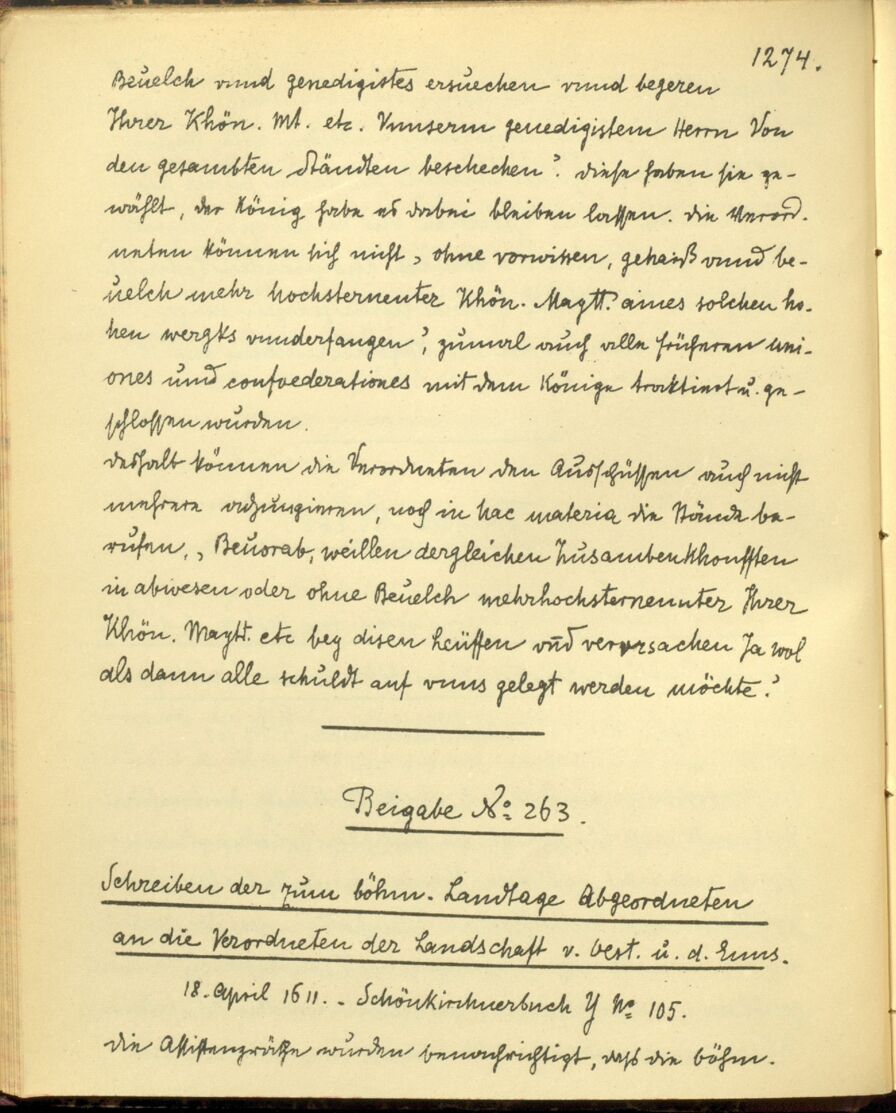 1274.
Beuelch vnnd genedigistes ersuechen vnnd begeren
Ihrer Khön. Mt. etc. Vnnserm genedigistem Herrn Von
den gesambten Ständten beschechen". Diese haben sie ge-
wählt, der König habe es dabei bleiben lassen. Die Verord-
neten können sich nicht „ohne vorwissen, gehaiß vnnd be-
uelch mehr hochsternenter Khön. Maytt. aines solchen ho-
hen wergks vnnderfangen", zumal auch alle früheren uni-
ones und confoederationes mit dem Könige traktiert u. ge-
schlossen wurden.
Deshalb können die Verordneten den Ausschüssen auch nicht
mehrere adjungieren, noch in hac materia die Stände be-
rufen, „Beuorab, weillen dergleichen Zusambenkhonfften
in abwesen oder ohne Beuelch mehrhochsternennter Ihrer
Khön. Maytt. etc bey disen leüffen vnd verursachen Ja wol
als dann alle schuldt auf vnns gelegt werden möchte."
Beigabe No. 263.
Schreiben der zum böhm. Landtage Abgeordneten
an die Verordneten der Landschaft v. Oest. u. d. Enns.
18. April 1611. - Schönkirchnerbuch Y No. 105.
Die Assistenzräthe wurden benachrichtigt, daß die böhm.